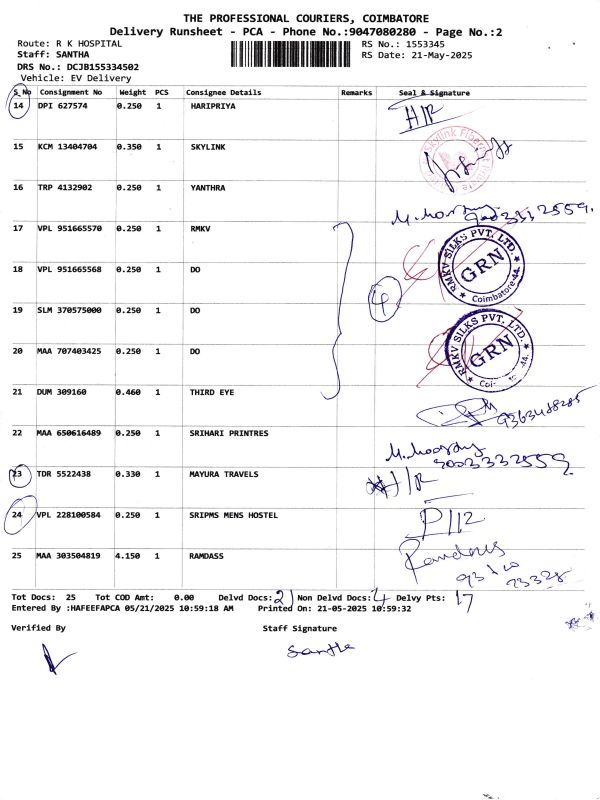 THE PROFESSIONAL COURIERS, COIMBATORE
Delivery Runsheet - PCA - Phone No.:9047080280 - Page No.:2
Route: R K HOSPITAL RS No.: 1553345
Staff: SANTHA RS Date: 21-May-2025
DRS No.: DCJB155334502
Vehicle: EV Delivery
S No Consignment No Weight PCS Consignee Details Remarks Seal & Signature
14 DPI 627574 0.250 1 HARIPRIYA H/R
15 KCM 13404704 0.350 1 SKYLINK Skylink Fiber
16 TRP 4132902 0.250 1 YANTHRA
17 VPL 951665570 0.250 1 RMKV RMKV SILKS PVT. LTD. GRN Coimbatore-44.
18 VPL 951665568 0.250 1 DO 4
19 SLM 370575000 0.250 1 DO RMKV SILKS PVT. LTD. GRN
20 MAA 707403425 0.250 1 DO
21 DUM 309160 0.460 1 THIRD EYE
22 MAA 650616489 0.250 1 SRIHARI PRINTRES
23 TDR 5522438 0.330 1 MAYURA TRAVELS H/R
24 VPL 228100584 0.250 1 SRIPMS MENS HOSTEL
25 MAA 303504819 4.150 1 RAMDASS Ramdass
Tot Docs: 25 Tot COD Amt: 0.00 Delvd Docs: 21 Non Delvd Docs: 4 Delvy Pts: 17
Entered By :HAFEEFAPCA 05/21/2025 10:59:18 AM Printed On: 21-05-2025 10:59:32
Verified By Staff Signature
Santha